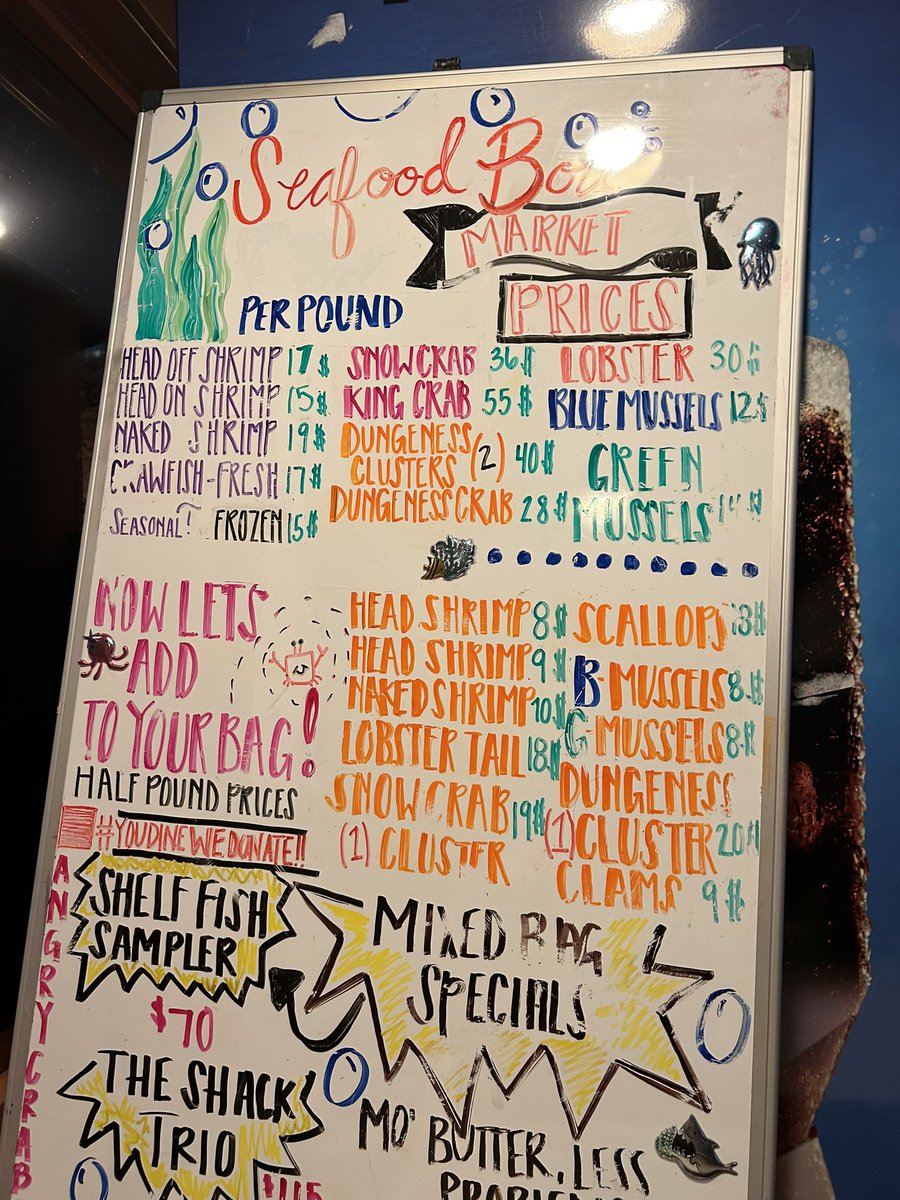 Seafood
MARKET
PRICES
PER POUND
HEAD OFF SHRIMP 17$
HEAD ON SHRIMP 15$
NAKED SHRIMP 19$
CRAWFISH-FRESH 17$
SEASONAL! FROZEN 15$
SNOWCRAB 36$
KING CRAB 55$
DUNGENESS
CLUSTERS (2) 40$
DUNGENESS CRAB 28$
LOBSTER 30$
BLUE MUSSELS 12$
GREEN
MUSSELS
NOW LETS
ADD
TO YOUR BAG!
HALF POUND PRICES
#YOUDINEWEDONATE!!
HEAD SHRIMP 8$
HEAD SHRIMP 9$
NAKED SHRIMP 10$
LOBSTER TAIL 18$
SNOWCRAB 19$
(1) CLUSTER
SCALLOPS
B-MUSSELS 8$
G-MUSSELS 8$
DUNGENESS
(1) CLUSTER 20$
CLAMS 9$
ANGRY CRAB
SHELF FISH
SAMPLER
$70
THE SHACK
TRIO
$115
MIXED BAG
SPECIALS
MO' BUTTER, LESS